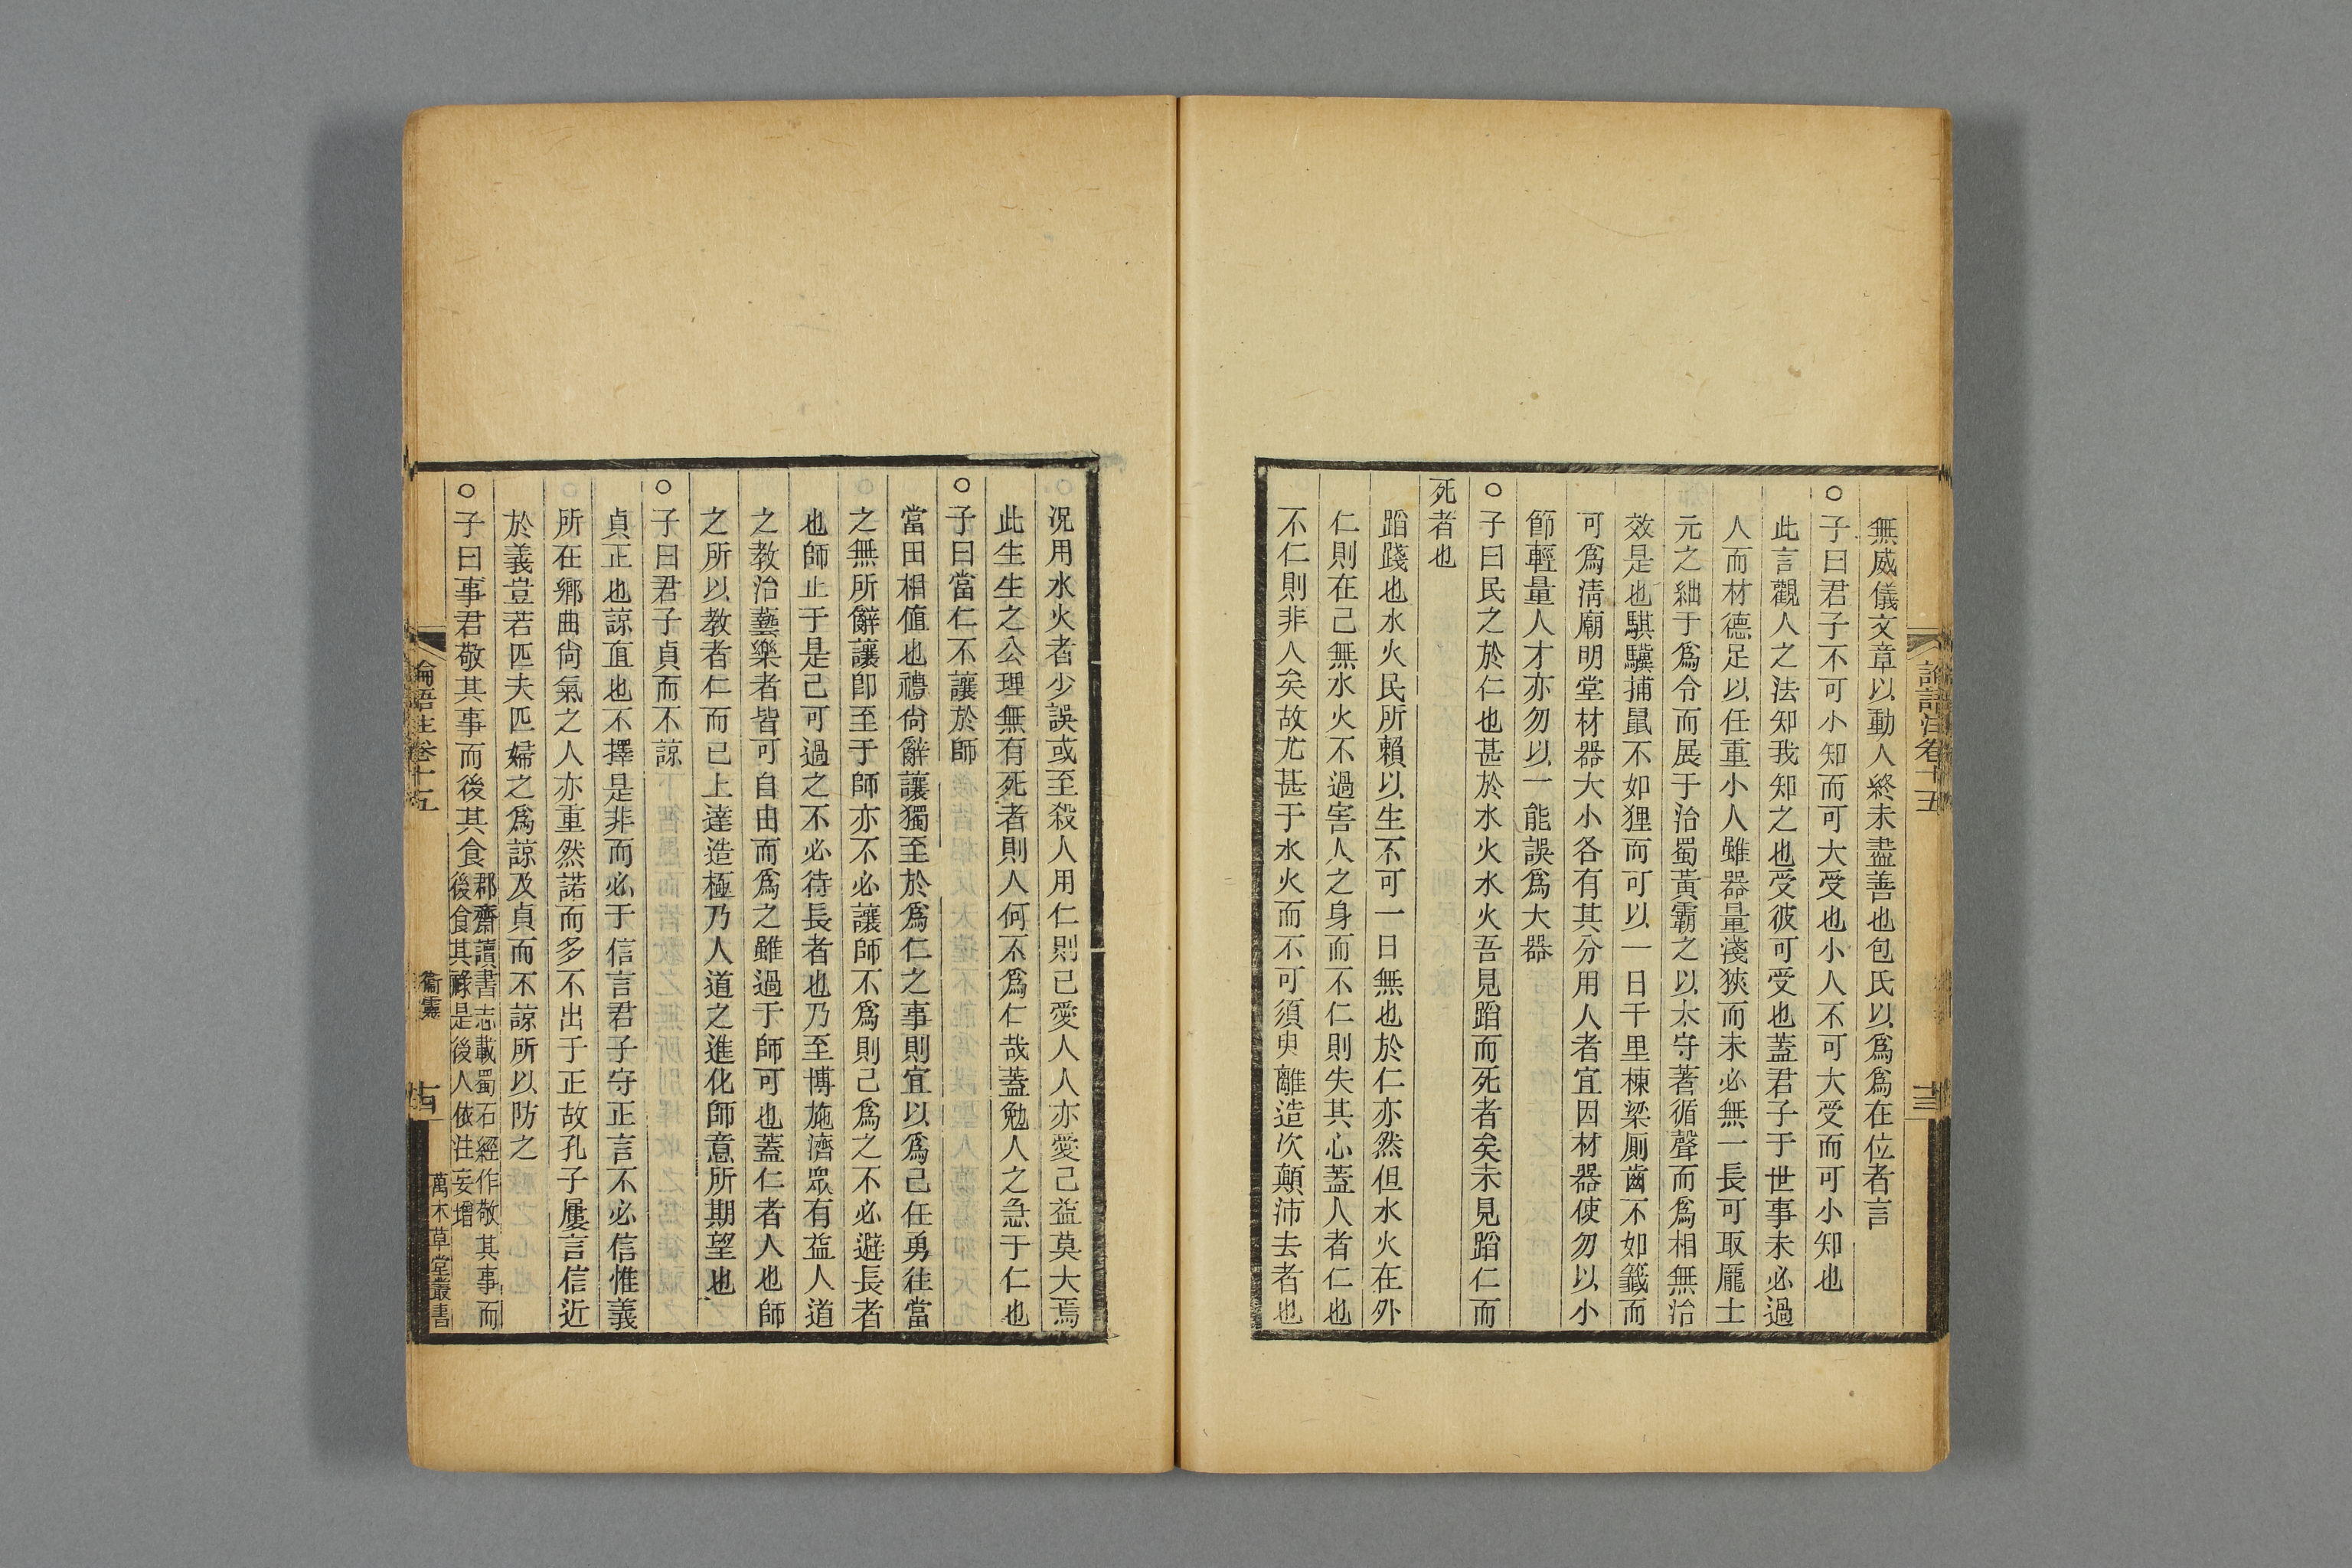 論語注卷十五
十三
無威儀文章以動人終未盡善也包氏以爲爲在位者言
○子曰君子不可小知而可大受也小人不可大受而可小知也
此言觀人之法知我知之也受彼可受也蓋君子于世事未必過
人而材德足以任重小人雖器量淺狹而未必無一長可取龎士
元之絀于爲令而展于治蜀黃霸之以太守著循聲而爲相無治
效是也騏驥捕鼠不如狸而可以一日千里棟梁厠齒不如籤而
可爲淸廟明堂材器大小各有其分用人者宜因材器使勿以小
節輕量人才亦勿以一能誤爲大器
○子曰民之於仁也甚於水火水火吾見蹈而死者矣未見蹈仁而
死者也
蹈踐也水火民所賴以生不可一日無也於仁亦然但水火在外
仁則在己無水火不過害人之身而不仁則失其心蓋人者仁也
不仁則非人矣故尤甚于水火而不可須臾離造次顛沛去者也
況用水火者少誤或至殺人用仁則己愛人人亦愛己益莫大焉
此生生之公理無有死者則人何不爲仁哉蓋勉人之急于仁也
○子曰當仁不讓於師
當田相值也禮尙辭讓獨至於爲仁之事則宜以爲己任勇往當
之無所辭讓卽至于師亦不必讓師不爲則己爲之不必避長者
也師止于是己可過之不必待長者也乃至博施濟眾有益人道
之教治藝樂者皆可自由而爲之雖過于師可也蓋仁者人也師
之所以教者仁而已上達造極乃人道之進化師意所期望也
○子曰君子貞而不諒
貞正也諒直也不擇是非而必于信言君子守正言不必信惟義
所在鄉曲尙氣之人亦重然諾而多不出于正故孔子屢言信近
於義豈若匹夫匹婦之爲諒及貞而不諒所以防之
○子曰事君敬其事而後其食
郡齋讀書志載蜀石經作敬其事而
後食其祿是後人依注妄增
論語注卷十五
衞靈
十四
萬木草堂叢書